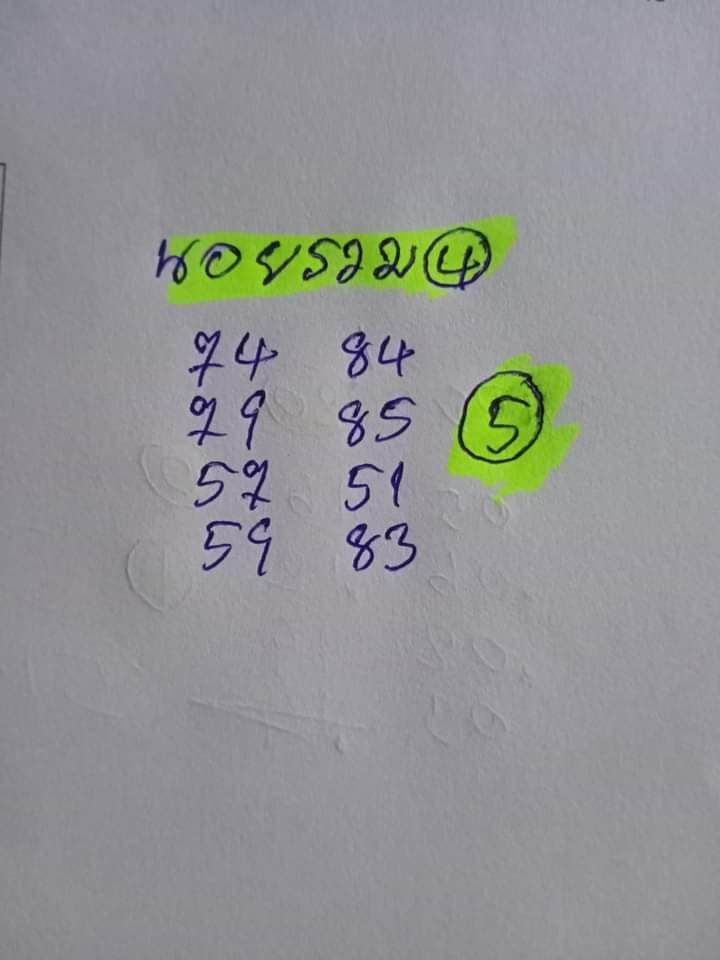 หอยรวม 4
74 84
79 85
5
57 51
59 83